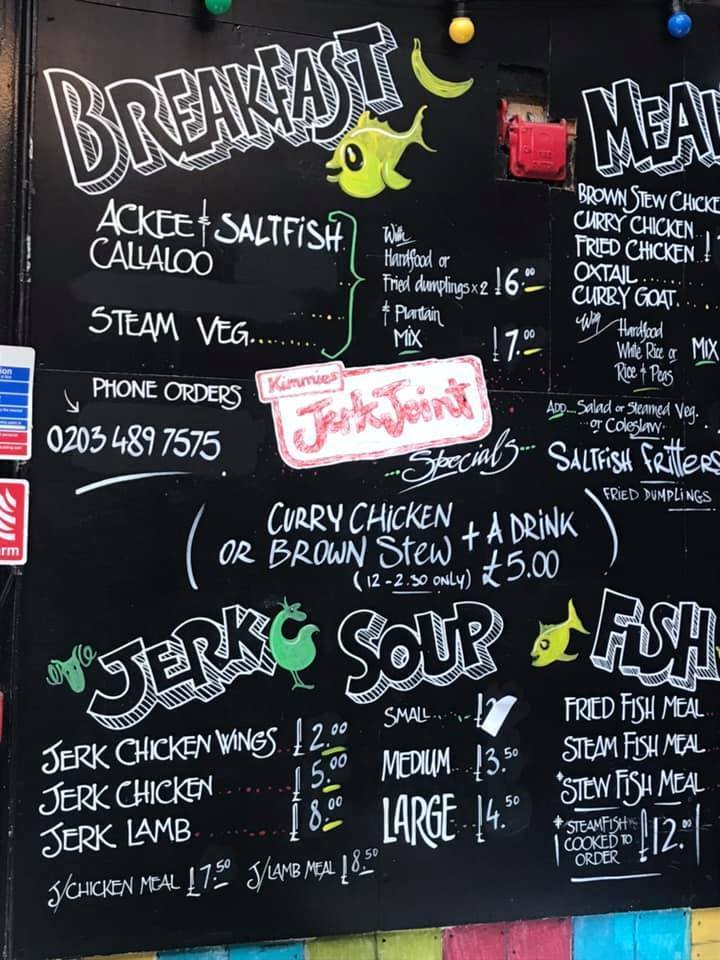 BREAKFAST
ACKEE & SALTFISH
CALLALOO
STEAM VEG.......
With
Hardfood or
Fried dumplings x 2 £6.00
& Plantain
MIX £7.00
PHONE ORDERS
0203 489 7575
Kimmies
Jerk Joint
Specials
(CURRY CHICKEN
OR BROWN STEW + A DRINK
(12-2.30 ONLY) £5.00)
JERK
JERK CHICKEN WINGS £2.00
JERK CHICKEN ....... £5.00
JERK LAMB....... £8.00
J/CHICKEN MEAL £7.50 J/LAMB MEAL £8.50
SOUP
SMALL.... £2
MEDIUM... £3.50
LARGE... £4.50
MEAL
BROWN STEW CHICKE
CURRY CHICKEN
FRIED CHICKEN
OXTAIL.......
CURRY GOAT.
With
Hardfood
White Rice or
Rice & Peas
MIX
ADD... Salad or Steamed Veg.
or Coleslaw
SALTFISH FRITTERS
FRIED DUMPLINGS
FISH
FRIED FISH MEAL
STEAM FISH MEAL
*STEW FISH MEAL
*STEAMFISH
COOKED TO
ORDER £12.
rm